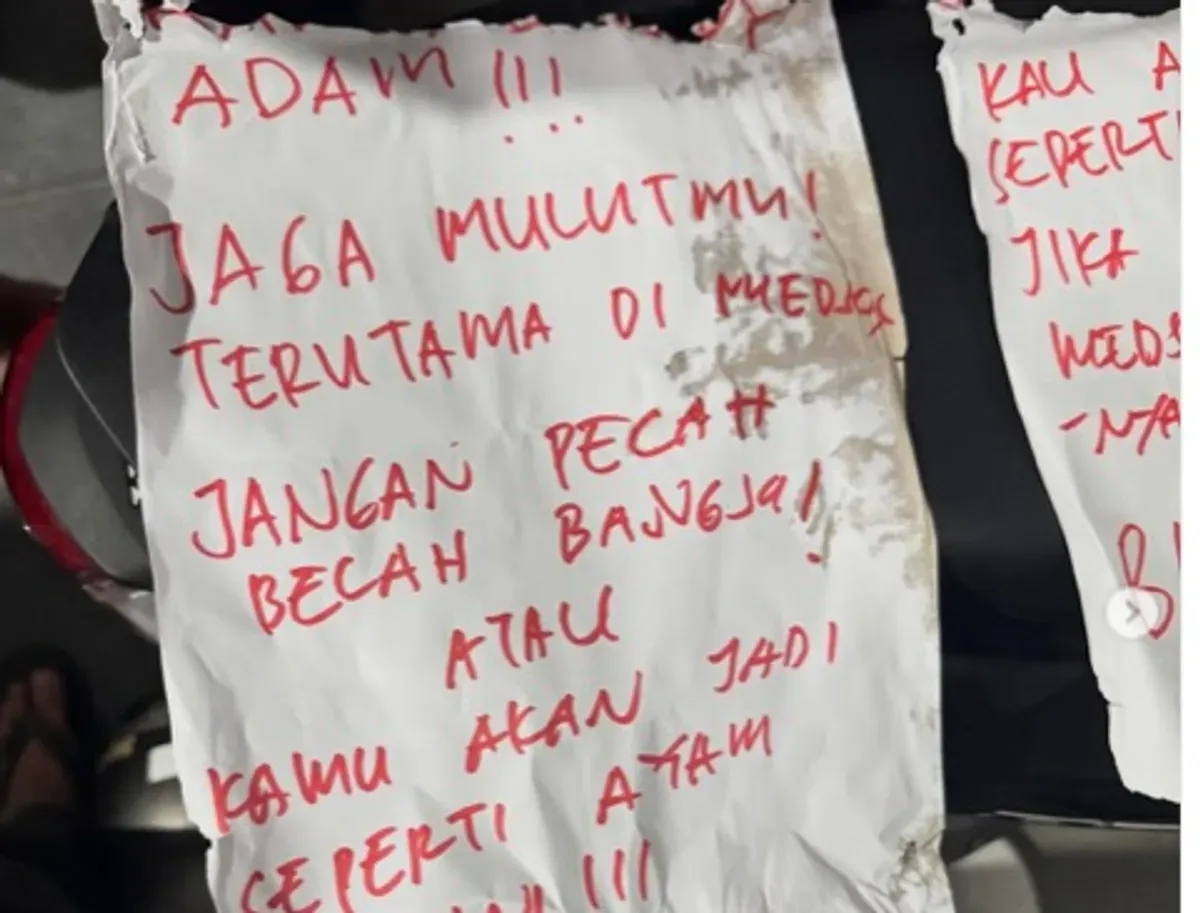 ADAM!!!
JAGA MULUTMU!
TERUTAMA DI
JANGAN PECAH
BECAH BANGSA!
ATAU
KAMU AKAN JADI
SEPERTI AYAM
!!!
KAU A
SEPERTI
JIKA
MEDS
-NYA